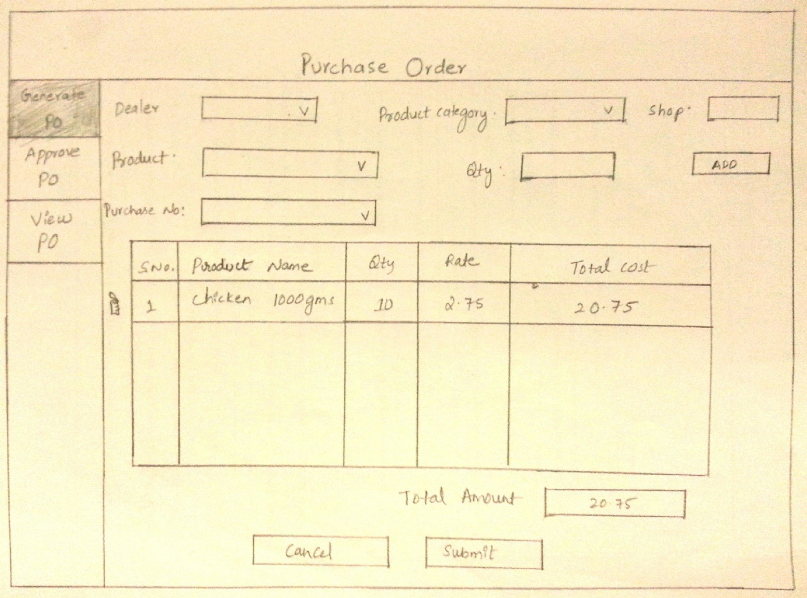 Purchase Order
Generate
PO
Approve
PO
View
PO
Dealer
Product category:
Shop:
Product:
Qty:
ADD
Purchase No:
S.No. Product Name Qty Rate Total cost
1 Chicken 1000gms 10 2.75 20.75
Total Amount 20.75
Cancel Submit